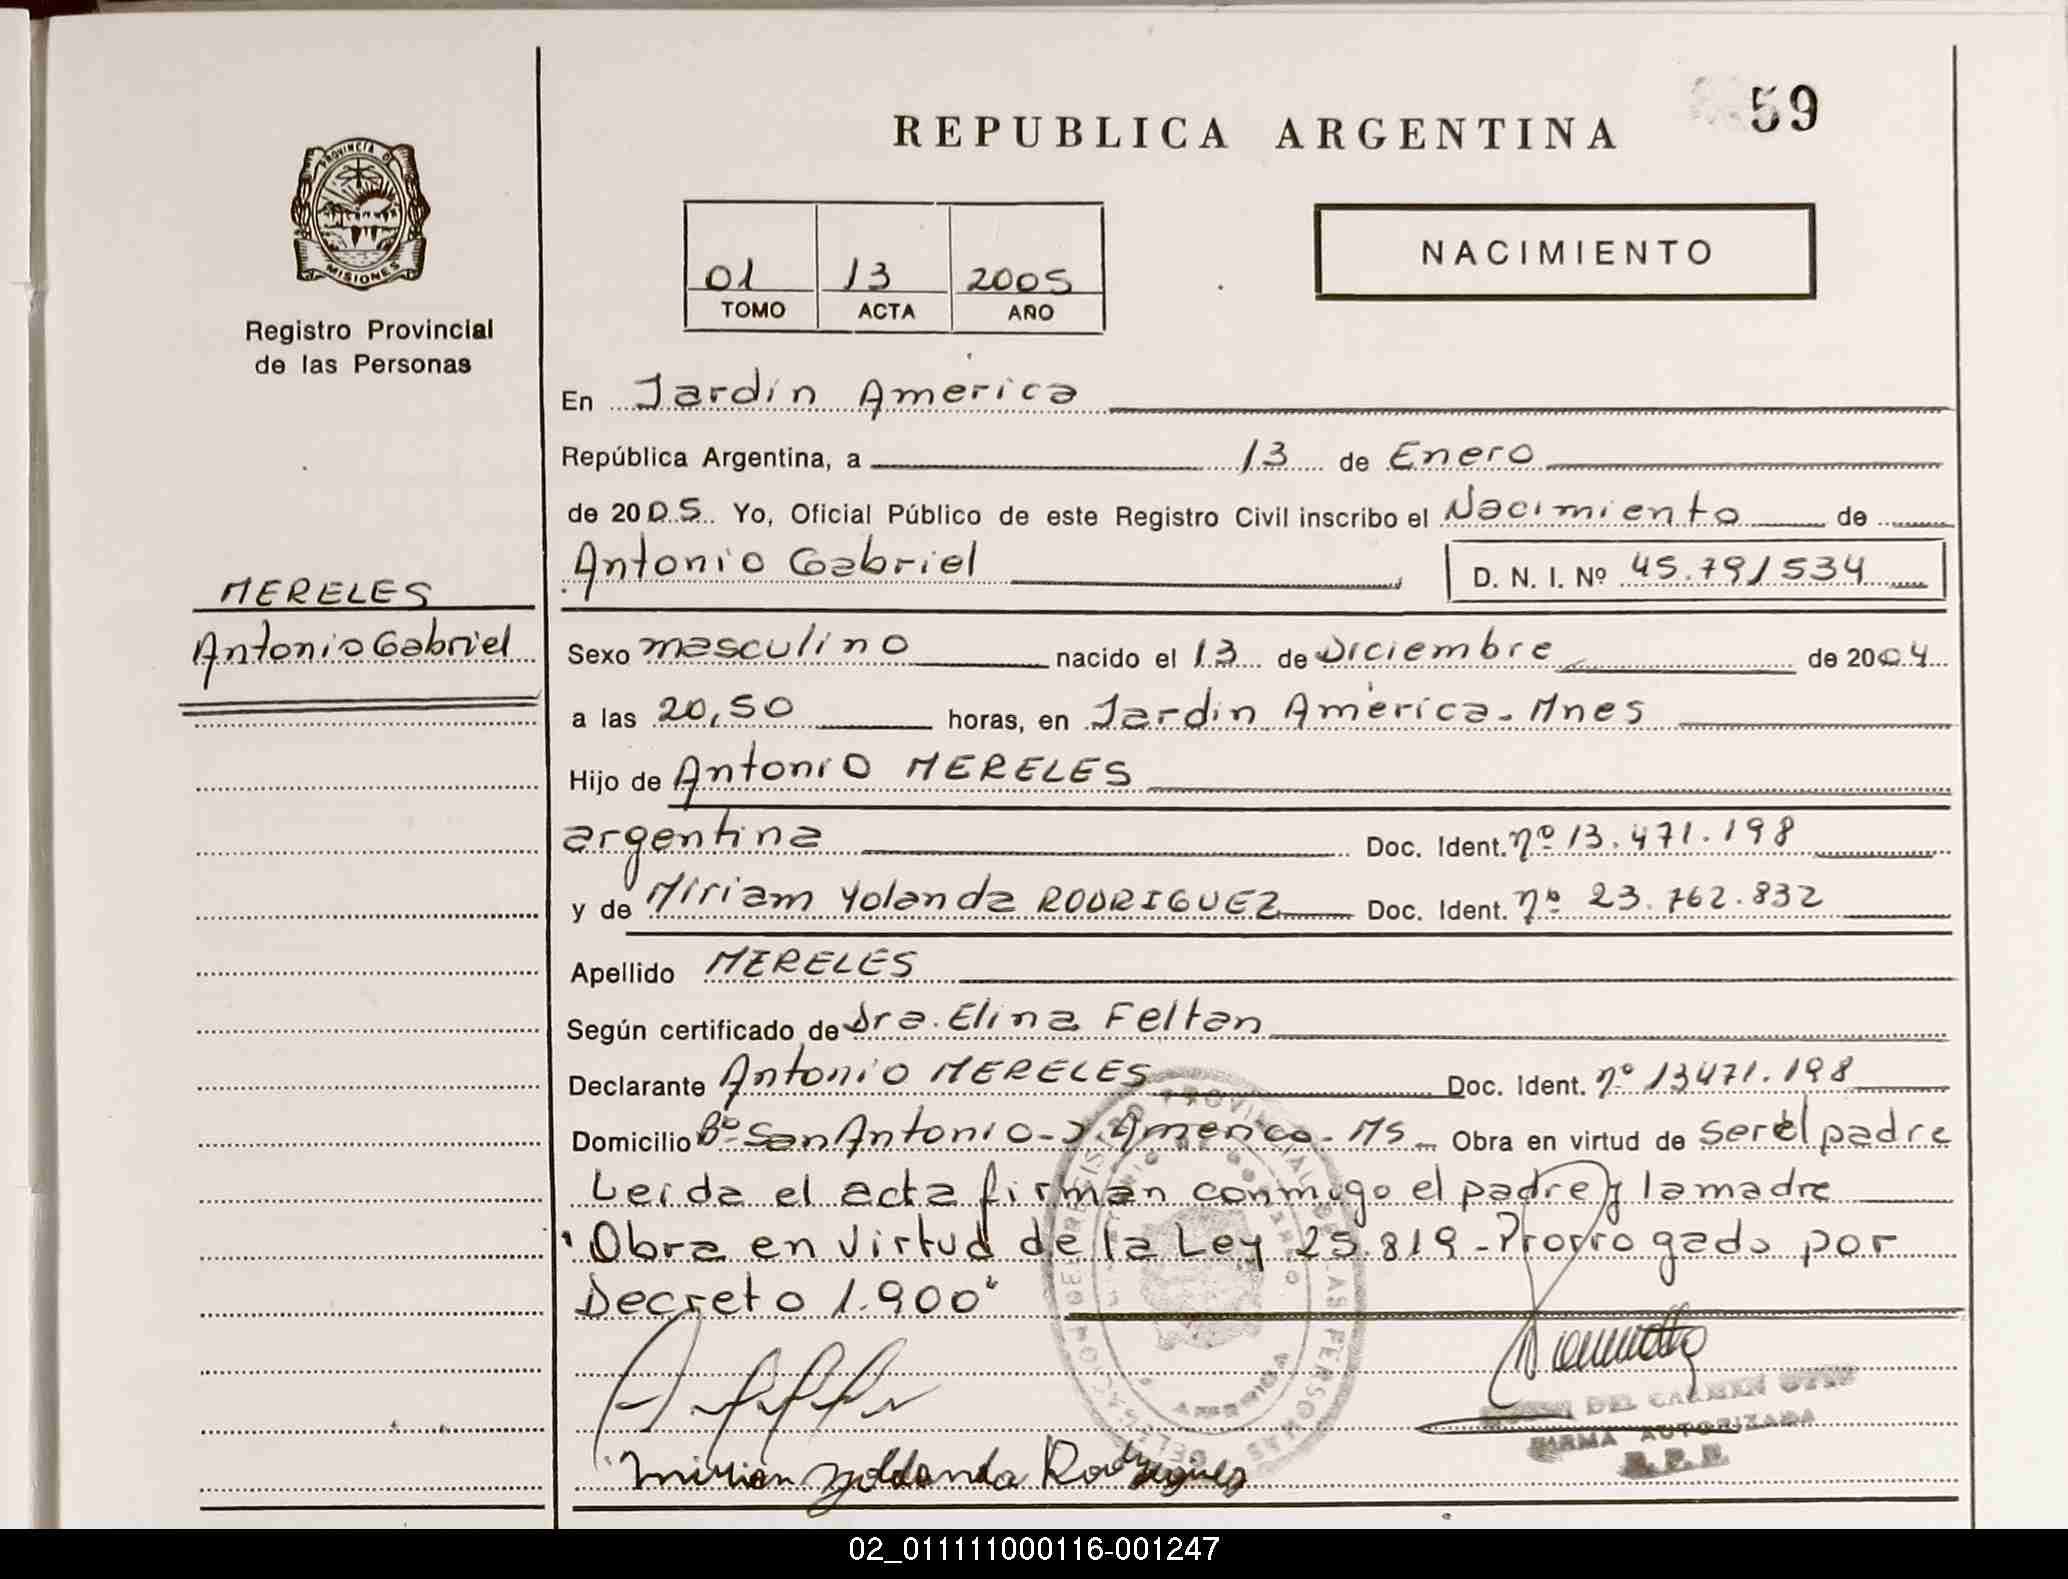 59
REPUBLICA ARGENTINA
PROVINCIA DE
MISIONES
Registro Provincial
de las Personas
01 13 2005
TOMO ACTA AÑO
NACIMIENTO
En Jardín America
República Argentina, a 13 de Enero
de 2005 Yo, Oficial Público de este Registro Civil inscribo el Nacimiento de
Antonio Gabriel D. N. I. Nº 45.791534
MERELES
Antonio Gabriel
Sexo masculino nacido el 13 de Diciembre de 2004
a las 20,50 horas, en Jardín América - Mnes
Hijo de Antonio MERELES
argentina Doc. Ident. nº 13.471.198
y de Miriam Yolanda RODRIGUEZ Doc. Ident. nº 23.762.832
Apellido MERELES
Según certificado de Dra. Elina Feltan
Declarante Antonio MERELES Doc. Ident. nº 13471.198
Domicilio Bº San Antonio - J. America - Ms - Obra en virtud de ser el padre
Leída el acta firman conmigo el padre y la madre
"Obra en virtud de la Ley 25.819 - Prorrogado por
Decreto 1.900"
DEL CARMEN
FIRMA AUTORIZADA
R. P. P.
Mirian Yoldanda Rodriguez
02_011111000116-001247